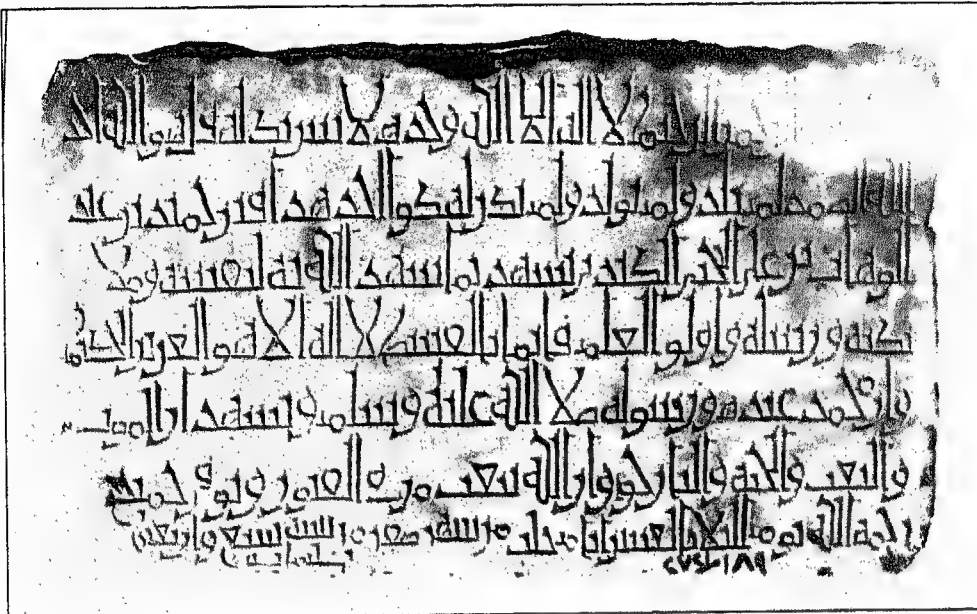 من الرحيم لا اله الا الله وحده لا شريك له قل هو الله احد
الله الصمد لم يلد ولم يولد ولم يكن له كفوا احد هدا قبر محمد بن عبد
بن يشهد بما شهد الله به لنفسه وملا
ئكته ورسله واولو العلم قائما بالقسط لا اله الا هو العزيز الحكيم
وان محمد عبده ورسوله صلى الله عليه وسلم ويشهد ان الموت
والبعث والجنة والنار حق وان الله يبعث من في القبور وتوفي محمد
رحمه الله يوم الثلاثا من شهر صفر من سنه تسع واربعين
وماتين